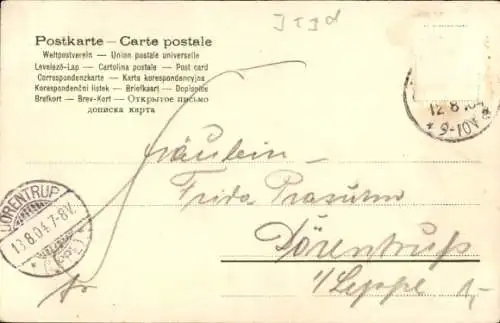 Postkarte — Carte postale
Weltpostverein — Union postale universelle
Levelező-Lap — Cartolina postale — Post card
Correspondenzkarte — Karta korespondencyjna
Korespondenční lístek — Briefkaart — Dopisnice
Brefkort — Brev-Kort — Открытое письмо
дописна карта
12.8.04
9-10V
Fräulein
Frida
Dörentrup
i/Lippe
DÖRENTRUP
13.8.04.7-8V.